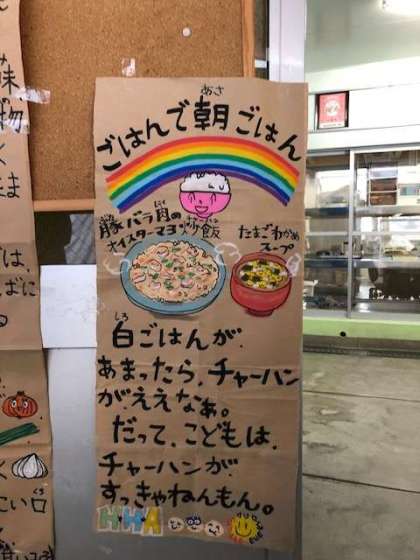 味
物
く
たま
では、
ばに
る
く
こい口
くち
あさ
ごはんで朝ごはん
豚バラ肉の
にく
オイスターマヨ炒飯
たまごわかめ
スープ
しろ
白ごはんが、
あまったら、チャーハン
がええなぁ。
だって、こどもは、
チャーハンが
すっきゃねんもん。
HHA